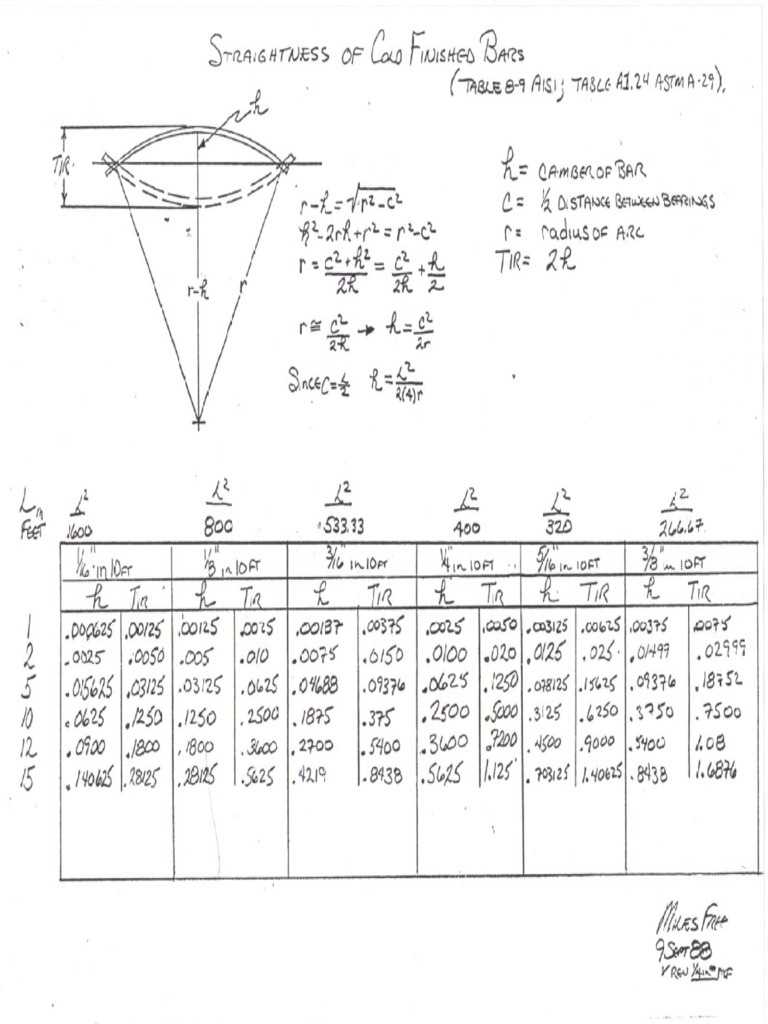 STRAIGHTNESS OF COLD FINISHED BARS
(TABLE 8-9 AISI; TABLE A1.24 ASTM A-29),
h
TIR
r-h
r
h = CAMBER OF BAR
C = 1/2 DISTANCE BETWEEN BEARINGS
r = radius OF ARC
TIR = 2h
r-h = √r²-c²
h²-2rh+r² = r²-c²
r = c²+h²/2h = c²/2h + h/2
r ≅ c²/2h → h = c²/2r
SINCE C = L/2 h = L²/2(4)r
L in FEET L²/1600 L²/800 L²/533.33 L²/400 L²/320 L²/266.67
1/16" in 10FT 1/8" in 10FT 3/16" in 10FT 1/4" in 10FT 5/16" in 10FT 3/8" in 10FT
h TIR h TIR h TIR h TIR h TIR h TIR
1 .000625 .00125 .00125 .0025 .00187 .00375 .0025 .0050 .003125 .00625 .00375 .0075
2 .0025 .0050 .005 .010 .0075 .0150 .0100 .020 .0125 .025 .01499 .02999
5 .015625 .03125 .03125 .0625 .04688 .09376 .0625 .1250 .078125 .15625 .09376 .18752
10 .0625 .1250 .1250 .2500 .1875 .375 .2500 .5000 .3125 .6250 .3750 .7500
12 .0900 .1800 .1800 .3600 .2700 .5400 .3600 .7200 .4500 .9000 .5400 1.08
15 .140625 .28125 .28125 .5625 .4219 .8438 .5625 1.125 .703125 1.40625 .8438 1.6876
MILES FREE
9 SEPT 88